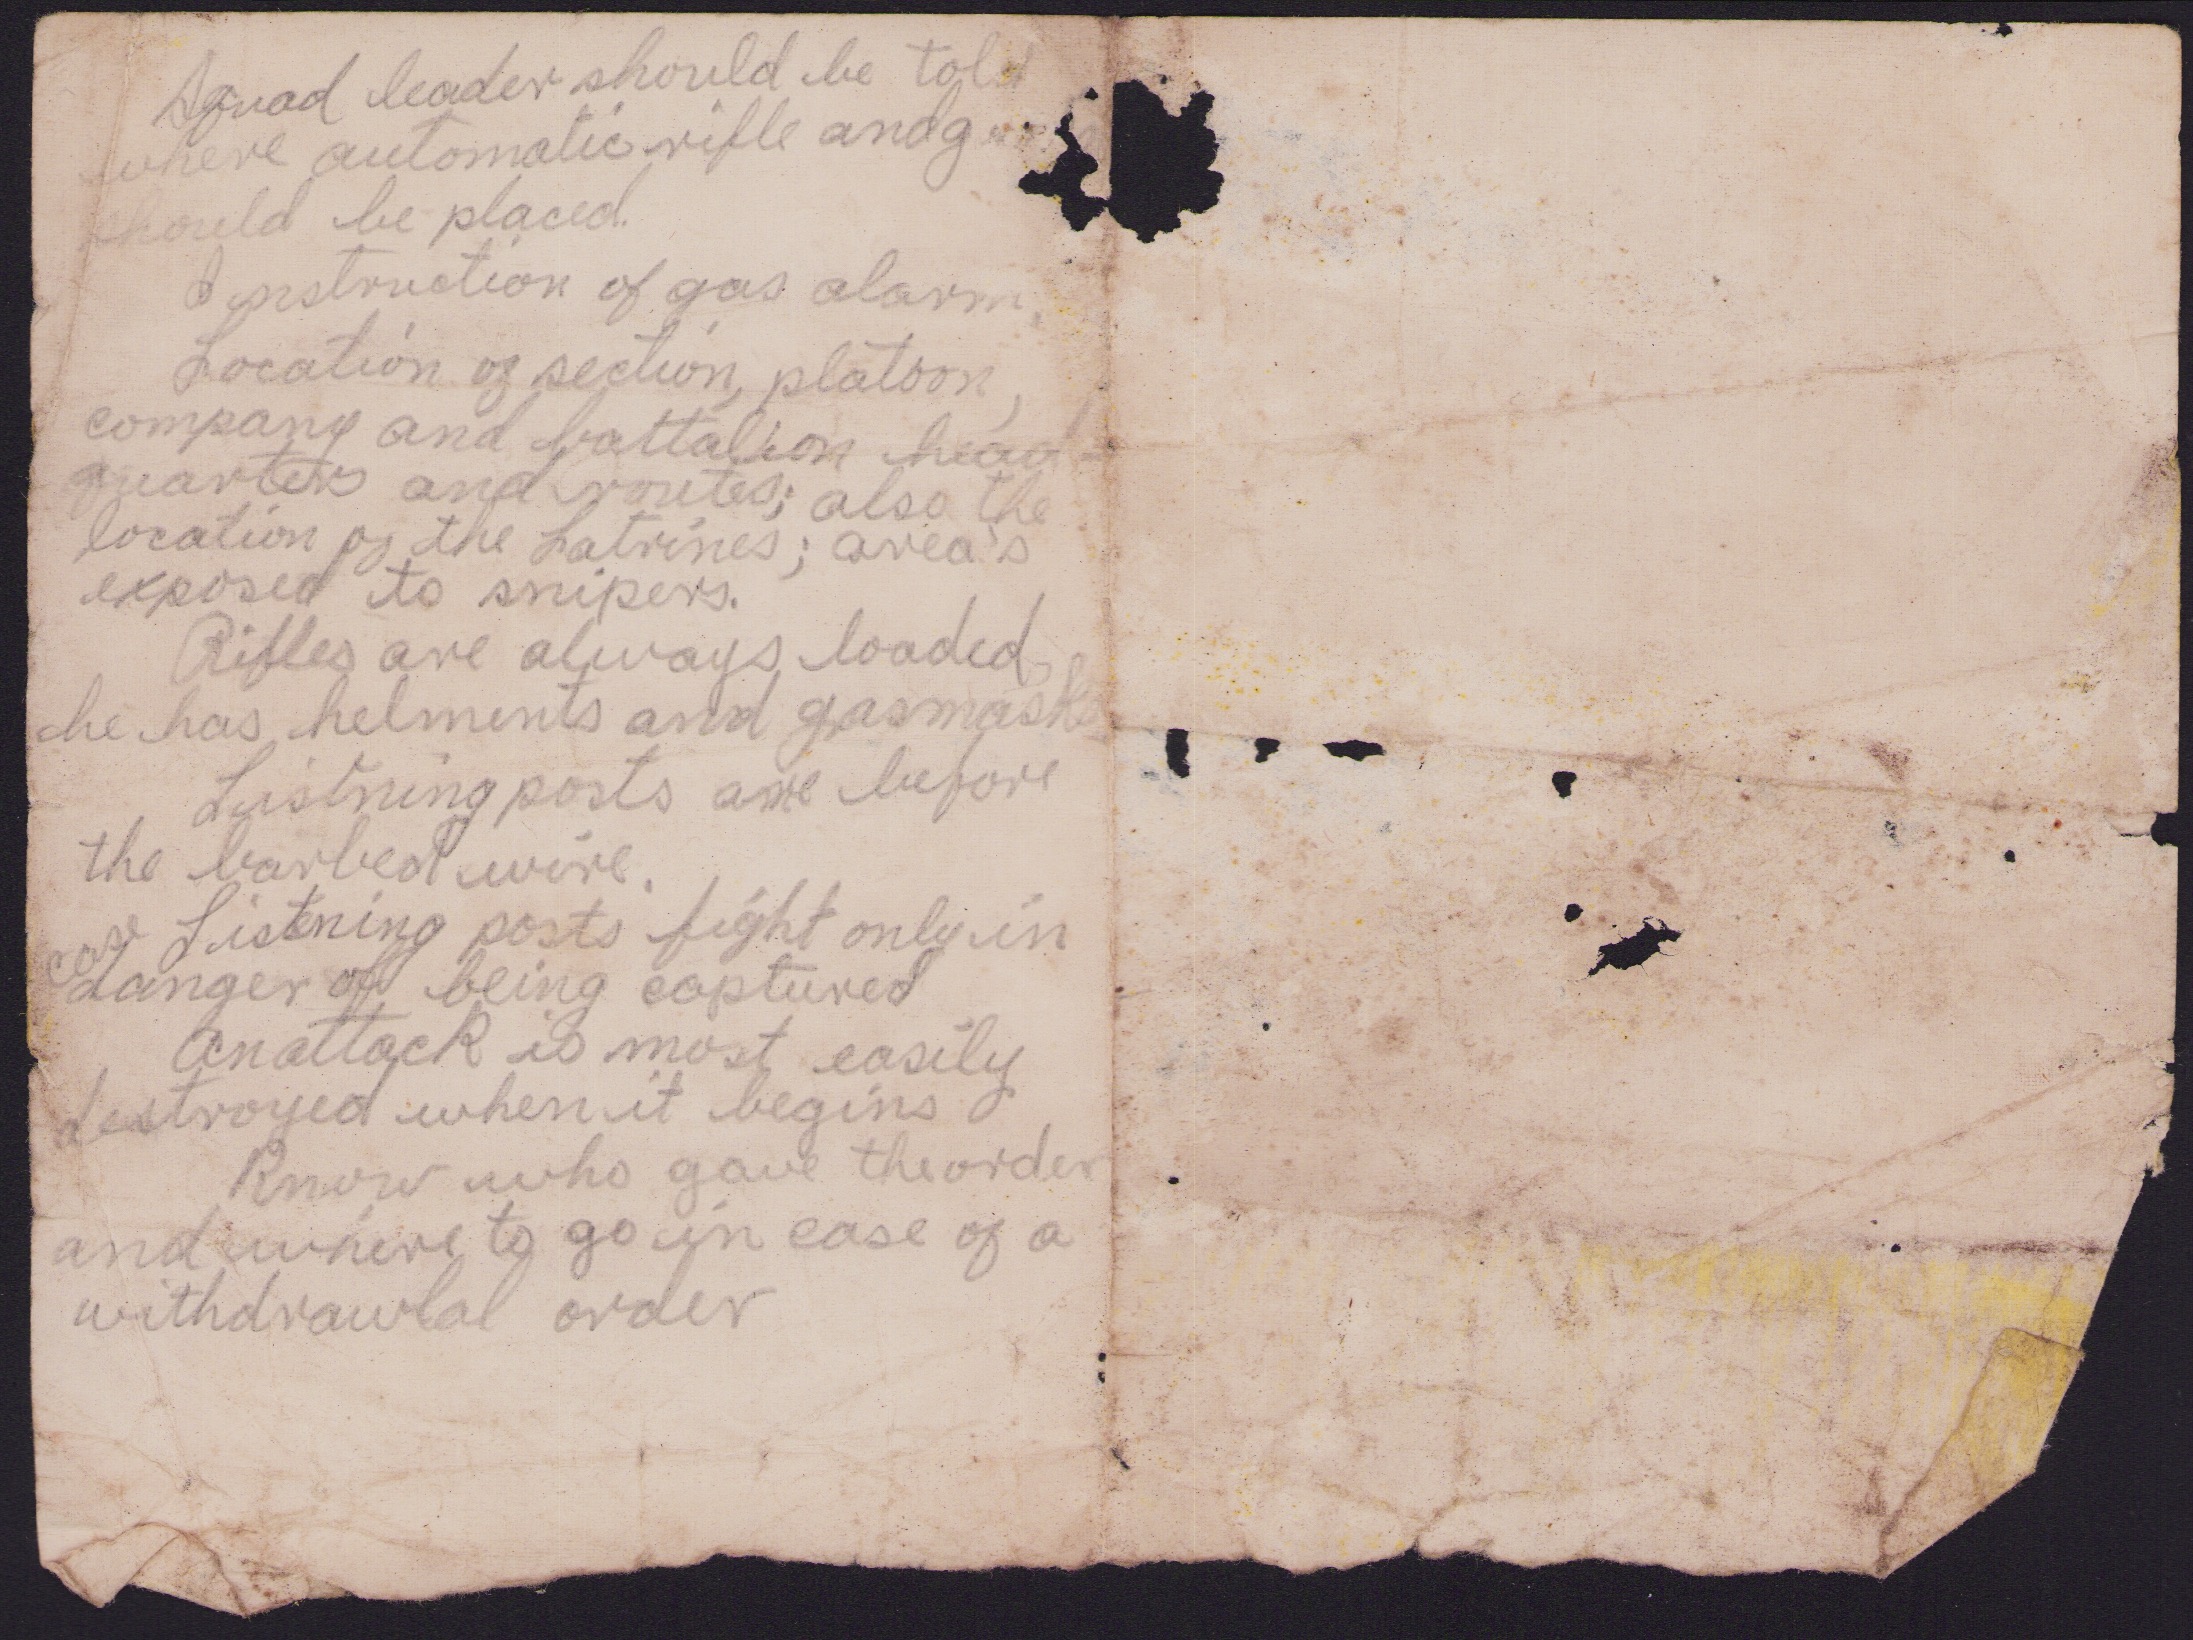 Squad leader should be told
where automatic rifle and
should be placed.
Instruction of gas alarm.
Location of section, platoon,
company and battalion head-
quarters and routes; also the
location of the Latrines; area's
exposed to snipers.
Rifles are always loaded,
he has helments and gasmasks
Listning posts are before
the barbed wire.
Listening posts fight only in
case danger of being captured
An attack is most easily
destroyed when it begins
Know who gave the order
and where to go in case of a
withdrawlal order